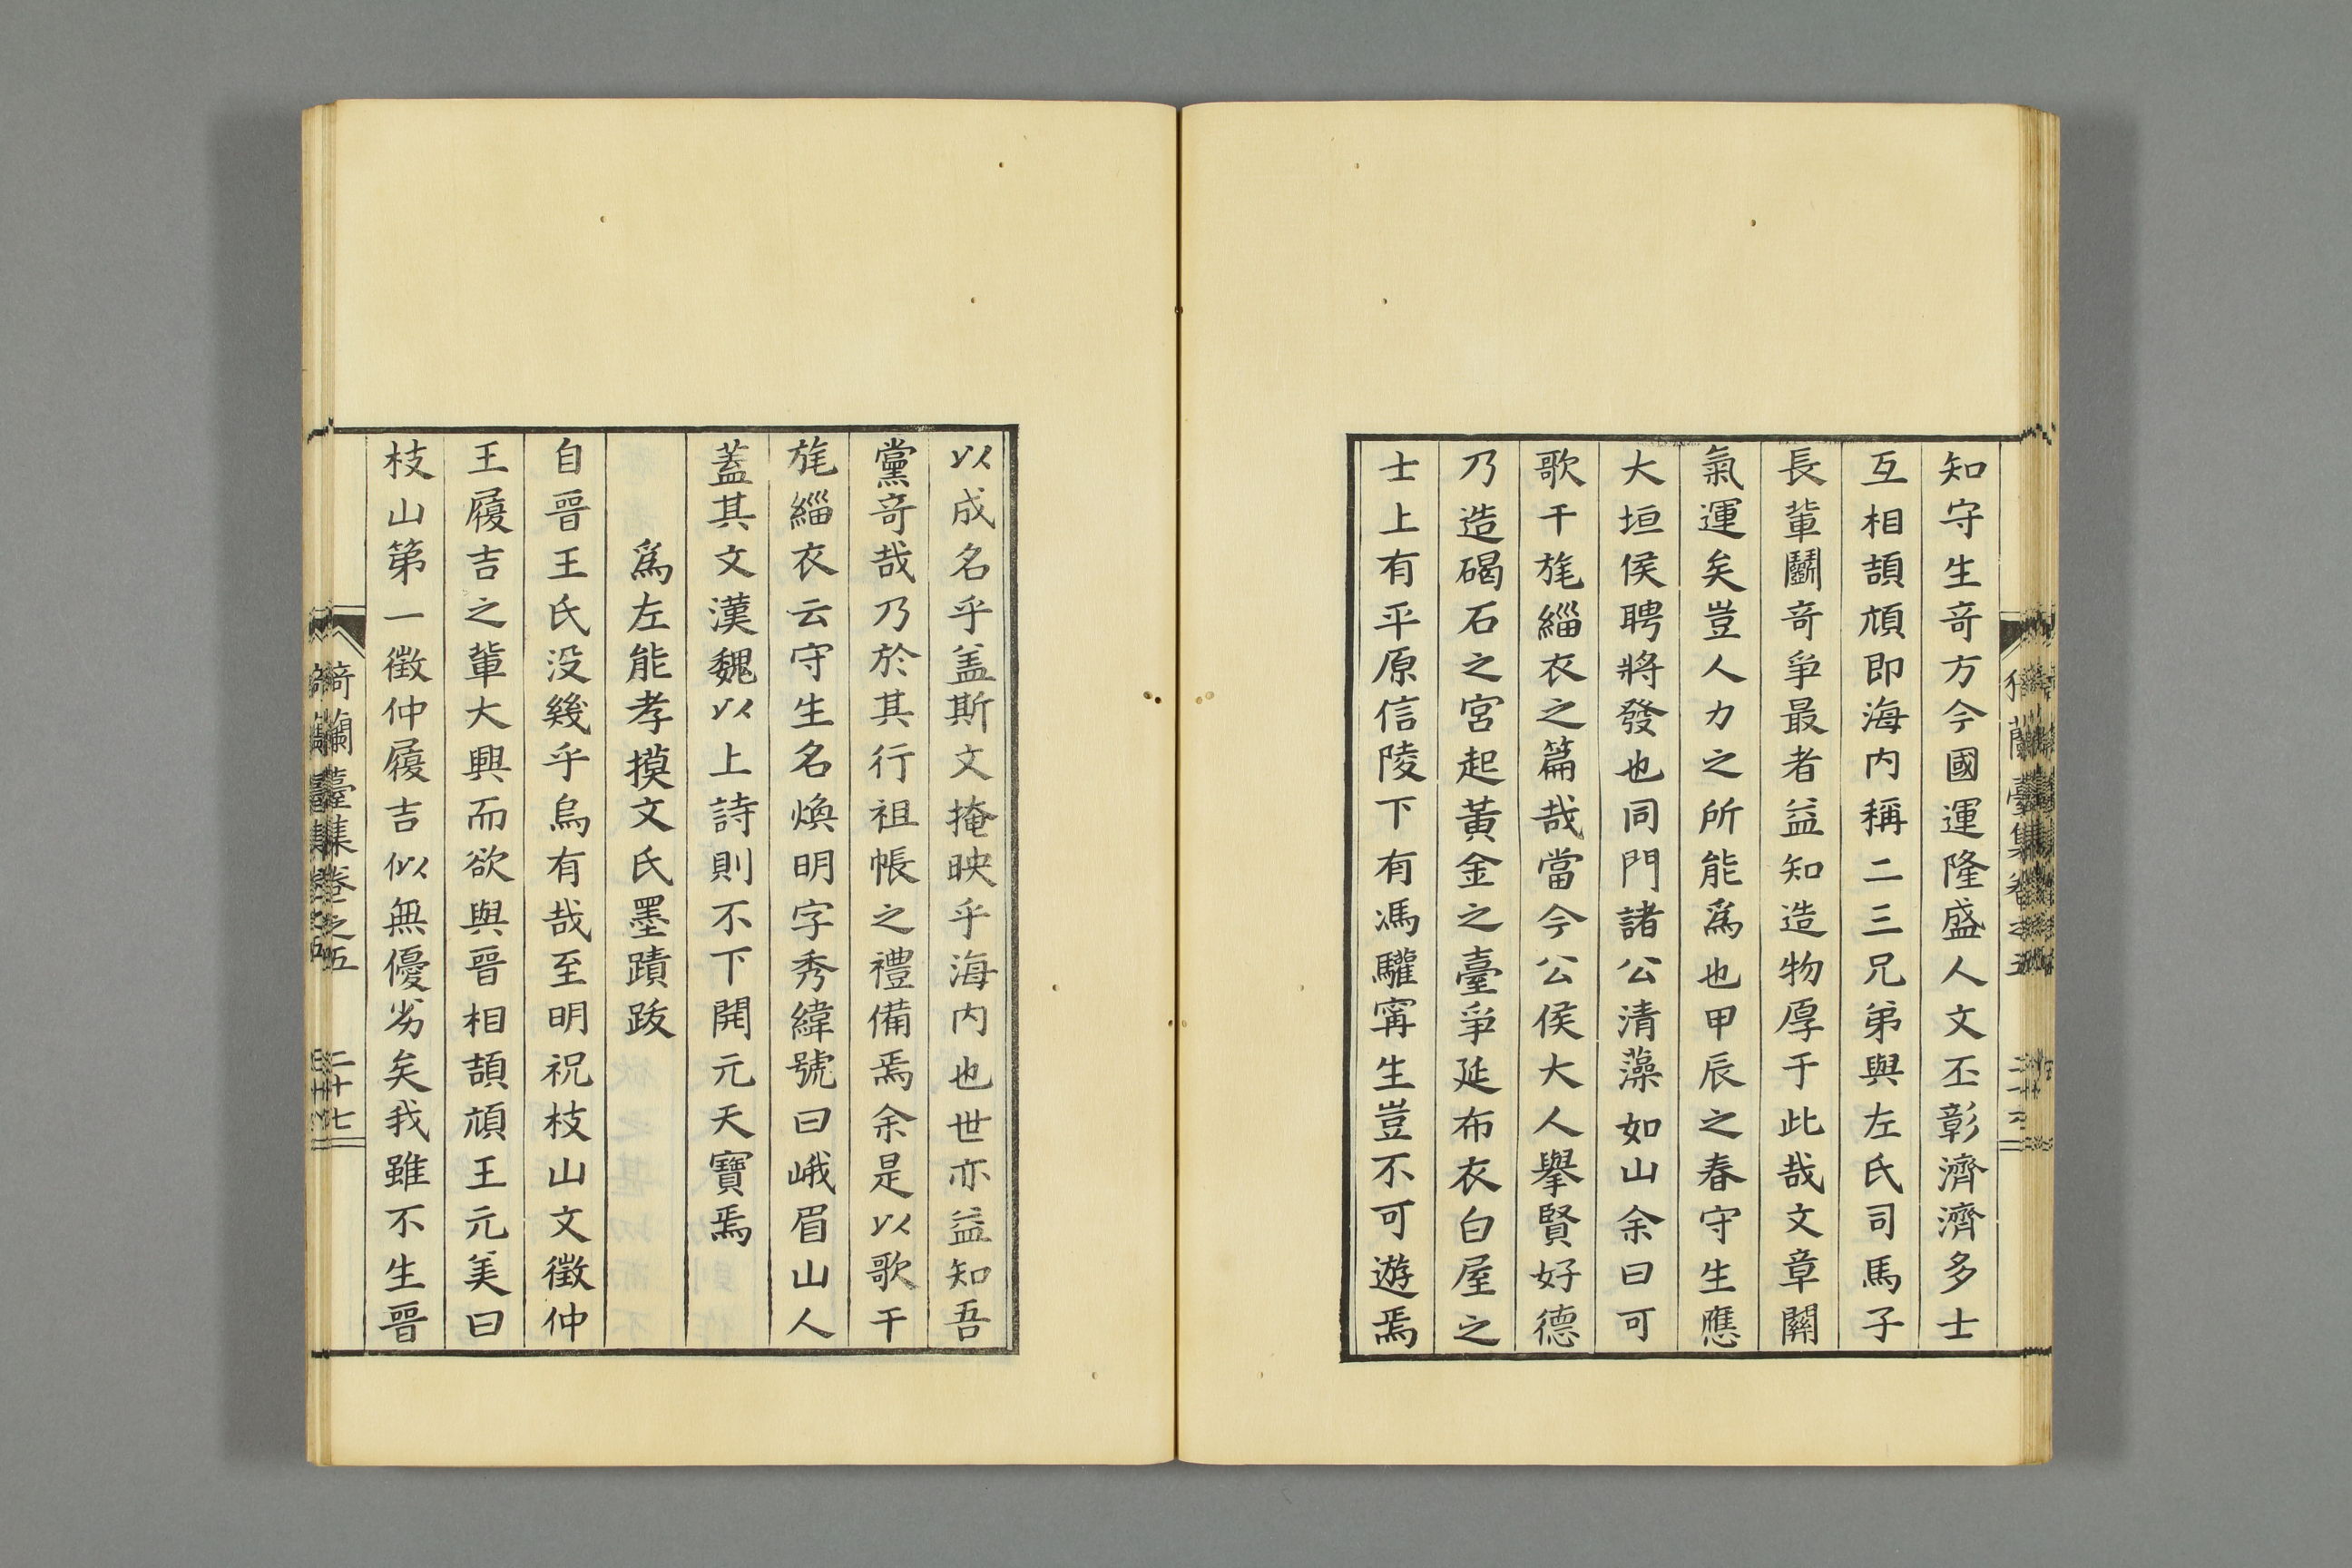 知守生竒方今國運隆盛人文丕彰濟濟多士
互相頡頏即海内稱二三兄弟與左氏司馬子
長軰鬬竒爭最者益知造物厚于此哉文章關
氣運矣豈人力之所能爲也甲辰之春守生應
大垣侯聘將發也同門諸公清藻如山余曰可
歌干旄緇衣之篇哉當今公侯大人擧賢好德
乃造碣石之宮起黃金之臺爭延布衣白屋之
士上有平原信陵下有馮驩寗生豈不可遊焉
以成名乎盖斯文掩映乎海内也世亦益知吾
黨竒哉乃於其行祖帳之禮備焉余是以歌干
旄緇衣云守生名煥明字秀緯號曰峨眉山人
蓋其文漢魏以上詩則不下開元天寶焉
爲左能孝摸文氏墨蹟跋
自晉王氏没幾乎烏有哉至明祝枝山文徵仲
王履吉之軰大興而欲與晉相頡頏王元美曰
枝山第一徵仲履吉似無優劣矣我雖不生晉
猗蘭臺集卷之五 二十七